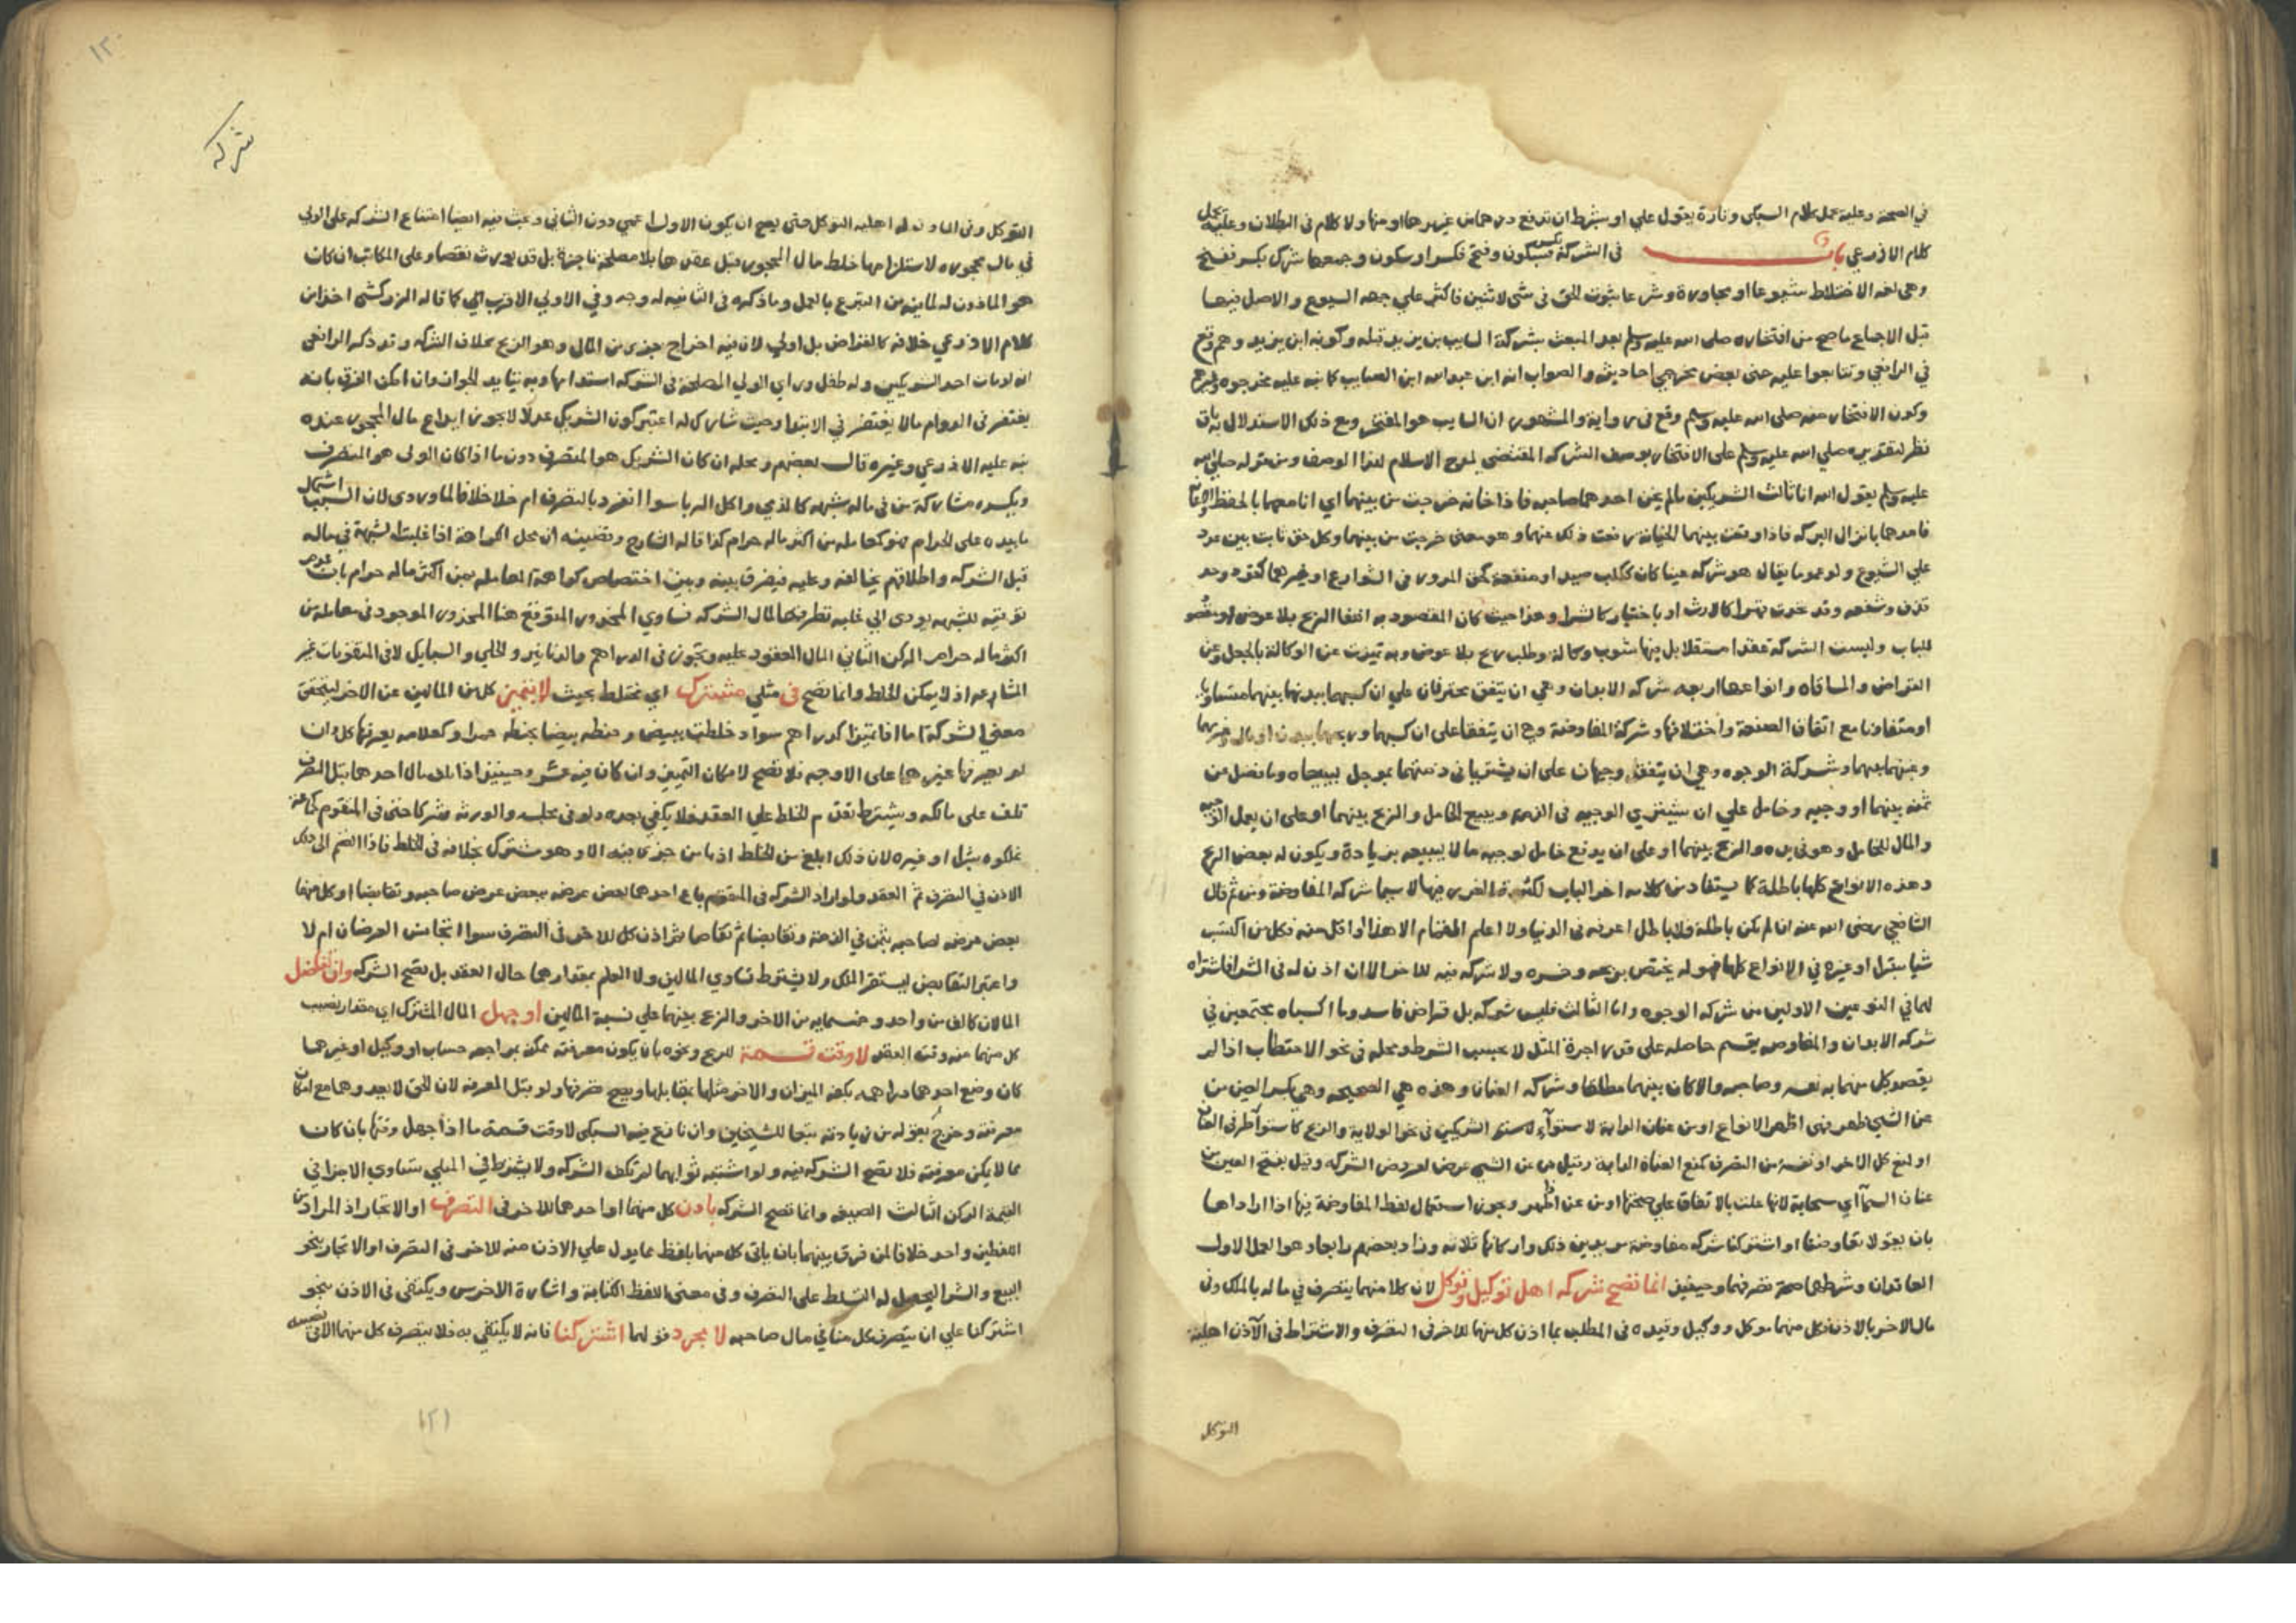 في الصحة وعليه عمل كلام السبكي وتارة يقول علي او بشرط ان تدفع من هما من غيرها او منها ولا كلام في البطلان وعليه يحمل
كلام الاذرعي باب في الشركة بكسر فسكون وفتح فكسر او سكون وجمعها شرك بكسر ففتح
وهي لغه الاختلاط شيوعا او مجاورة وشرعا ثبوت الحق في شي لاثنين فاكثر علي جهه الشيوع والاصل فيها
قبل الاجماع ما صح من افتخاره صلى الله عليه وسلم بعد المبعث بشركة السايب بن يزيد قبله وكونه ابن يزيد وهم وقع
في الرافعي وتتابعوا عليه حتى بعض مخرجي احاديثه والصواب انه ابن عبد الله ابن السايب كما نبه عليه مخرجوه
وكون الافتخار منه صلى الله عليه وسلم وقع في رواية والمشهور ان السايب هو المفتخر ومع ذلك الاستدلال به باق
نظر لتقريره صلي الله عليه وسلم على الافتخار بوصف الشركه المقتضي لمدح الاسلام لهذا الوصف ومن قوله صلى الله
عليه وسلم يقول الله انا ثالث الشريكين مالم يخن احدهما صاحبه فاذا خانه خرجت من بينهما اي انا معهما بالحفظ والاعانة
فامدهما بانزال البركه فاذا وقعت بينهما الخيانه رفعت ذلك عنهما وهو معنى خرجت من بينهما وكل حق ثابت بين عدد
علي الشيوع ولو عموما يقال هو شركه عينا كان ككلب صيد او منفعة كحق المرور في الشوارع او غيرهما كقود وحد
قذف وشفعه وقد تحدث قهرا كالارث او باختيار كالشرا وهذا حيث كان المقصود به ابتغا الربح بلا عوض هو مقصود
الباب وليست الشركة عقدا مستقلا بل فيها شوب وكالة وطلب ربح بلا عوض وبه تميزت عن الوكالة بالجعل وعن
القراض والمساقاه وانواعها اربعه شركه الابدان وهي ان يتفق محترفان علي ان كسبهما ببدنهما بينهما متساويا
او متفاوتا مع اتفاق الصنعة واختلافها وشركة المفاوضة وهي ان يتفقا على ان كسبهما وربحهما ببدن او مال وغرمهما
وعنهما بينهما وشركة الوجوه وهي ان يتفق وجيهان على ان يشتريا في ذمتهما بموجل يبيعاه وما فضل من
ثمنه بينهما او وجيه وخامل علي ان يشتري الوجيه في الذمه ويبيع الخامل والربح بينهما او على ان يعمل الوجيه
والمال للخامل وهو في يده والربح بينهما او على ان يدفع خامل لوجيه مالا ليبيعه بزيادة ويكون له بعض الربح
وهذه الانواع كلها باطلة كما يستفاد من كلامه اخر الباب لكثرة الغرر فيها لا سيما شركه المفاوضة ومن ثم قال
الشافعي رضى الله عنه ان لم يكن باطلة فلا باطل اعرفه في الدنيا ولا اعلم القمار الا هذا او اقل منه فكل من اكتسب
شيا بشركة او غيره في الانواع كلها فهو له يختص بربحه وخسره ولا شركه فيه للاخر الا ان اذن له في الشرا فاشتراه
لهما في النوعين الاولين من شركه الوجوه واما الثالث فليس شركه بل قراض فاسد وما اكسباه مجتمعين في
شركه الابدان والمفاوضه يقسم حاصله على قدر اجرة المثل لا بحسب الشرط ومحله في نحو الاحتطاب اذا لم
يقصد كل منهما به نفسه وصاحبه والا كان بينهما مطلقا وشركه العنان وهذه هي الصحيحه وهي بكسر العين من
عن الشي ظهر فهي اظهر الانواع او من عنان الدابة لاستواء الشريكين في نحو الولاية والربح كاستواء طرفي العنان
او لمنع كل الاخر او نفسه من التصرف كمنع العنان الدابة وقيل من عن الشي عرض لعروض الشركه وقيل بفتح العين من
عنان السما اي سحابة لانها علت بالاتفاق علي صحتها او من عن اظهر وبجوز استعمال لفظ المفاوضة فيها اذا اراداها
بان يقولا تفاوضنا او اشتركنا شركه مفاوضه مريدين ذلك واركانها ثلاثه وزاد بعضهم رابعا وهو العمل الاول
العاقدان وشرطهما صحة تصرفهما وحينئذ انما تصح شركه اهل توكيل وتوكل لان كلا منهما يتصرف في ماله بالملك وفي
مال الاخر بالاذن فكل منهما موكل ووكيل وقيده في المطلب بما اذن كل منهما للاخر في التصرف والاشتراط في الاذن اهلية
التوكل
١٢٠
شركه
التوكل وفي الماذون له اهليه التوكل حتى يصح ان يكون الاول اعمي دون الثاني وبحث فيه ايضا امتناع الشركه على الولي
في مال محجوره لاستلزامها خلط مال المحجور قبل عقدها بلا مصلحة ناجزة بل قد يورث نقصا وعلى المكاتب ان كان
هو الماذون له لما فيه من التبرع بالعمل وما ذكره في الثانيه له وجه وفي الاولي الاقرب الي كما قاله الزركشي اخذا من
كلام الاذرعي خلافه كالقراض بل اولي لان فيه اخراج جزء من المال وهو الربح بخلاف الشركه وقد ذكر الرافعي
انه لو مات احد الشريكين وله طفل وراي الولي المصلحة في الشركه استدامها وبه يتايد الجواز وان امكن الفرق بانه
يغتفر في الدوام مالا يغتفر في الابتدا وحيث شارك له اعتبر كون الشريك عدلا لا يجوز ايداع مال المحجور عنده
نبه عليه الاذرعي وغيره قال بعضهم ومحله ان كان الشريك هو المتصرف دون ما اذا كان الولي هو المتصرف
ويكره مشاركة من في ماله شبهه كالذمي واكل الربا سوا انفرد بالتصرف ام خلا خلافا للماوردي لان السبب اشتمال
ما بيده على الحرام فهو كمعامله من اكثر ماله حرام كذا قاله الشارح وقضيته ان محل الكراهة اذا غلبت الشبهة في ماله
قبل الشركه واطلاقهم يخالفه وعليه فيفرق بينه وبين اختصاص كراهة المعامله بمن اكثر ماله حرام بان عدم
توقيه للشبهه يودي الي غلبه تطرقها لمال الشركه فساوي المحذور المتوقع هنا المحذور الموجود في معاملة من
اكثر ماله حرام الركن الثاني المال المعقود عليه وتجوز في الدراهم والدنانير والحلي والسبايك لا في المتقومات غير
المشاعه اذ لا يمكن الخلط وانما تصح في مثلي مشترك اي مختلط بحيث لا يتميز كل من المالين عن الاخر ليتحقق
معنى الشركة اما اذا تميزا كدراهم سواد خلطت ببيض وحنطه بيضا بحنطه حمرا وكعلامه يعرفها كل وان
لم يعرفها غيرهما على الاوجه فلا تصح لامكان التميز وان كان فيه عسر وحينئذ اذا تلف مال احدهما قبل التصرف
تلف على مالكه ويشترط تقدم الخلط علي العقد فلا يكفي بعده ولو في مجلسه والورثه شركا حتى في المتقوم كجماعة
ملكوه بشرا او غيره لان ذلك ابلغ من الخلط اذ ما من جزء فيه الا وهو مشترك بخلافه في الخلط فاذا انضم الى ذلك
الاذن في التصرف تم العقد ولو اراد الشركه في المتقوم باع احدهما بعض عرضه ببعض عرض صاحبه وتقابضا او كل منهما
بعض عرضه لصاحبه بثمن في الذمة وتقابضا ثم تقاصا ثم اذن كل للاخر في التصرف سوا اتجانس العرضان ام لا
واعتبر التقابض ليستقر الملك ولا يشترط تساوي المالين ولا العلم بمقدارهما حال العقد بل تصح الشركه وان تفاضل
المالان كالف من واحد وخمسمايه من الاخر والربح بينهما علي نسبة المالين او جهل المال المشترك اي مقدار نصيب
كل منهما منه وقت العقد لا وقت قسمة للربح ونحوه بان يكون معرفته ممكنه بمراجعه حساب او وكيل او غيرهما
كان وضع احدهما دراهمه بكفه الميزان والاخر مثلها بمقابلها ويصح ضربها ولو قبل المعرفه لان الحق لا يعدوهما مع امكان
معرفته وخرج بقوله من زيادته تبعا للشيخين وان نازع فيه السبكي لا وقت قسمة ما اذا جهل وقتها بان كان
مما لا يمكن معرفته فلا تصح الشركه فيه ولو اشتبه ثوابهما لم تكف الشركه ولا يشترط في المثلي تساوي الاجزا في
القيمة الركن الثالث الصيغه وانما تصح الشركه باذن كل منهما او احدهما للاخر في التصرف او الاتجار اذ المراد من
اللفظين واحد خلافا لمن فرق بينهما بان ياتي كل منهما بلفظ مما يدل علي الاذن منه للاخر في التصرف او الاتجار بنحو
البيع والشرا ليحصل له التسلط على التصرف وفي معنى اللفظ الكتابة واشارة الاخرس ويكتفى في الاذن بنحو
اشتركنا علي ان يتصرف كل منا في مال صاحبه لا بمجرد قولهما اشتركنا فانه لا يكتفي به فلا يتصرف كل منهما الا في نصيبه
١٢١